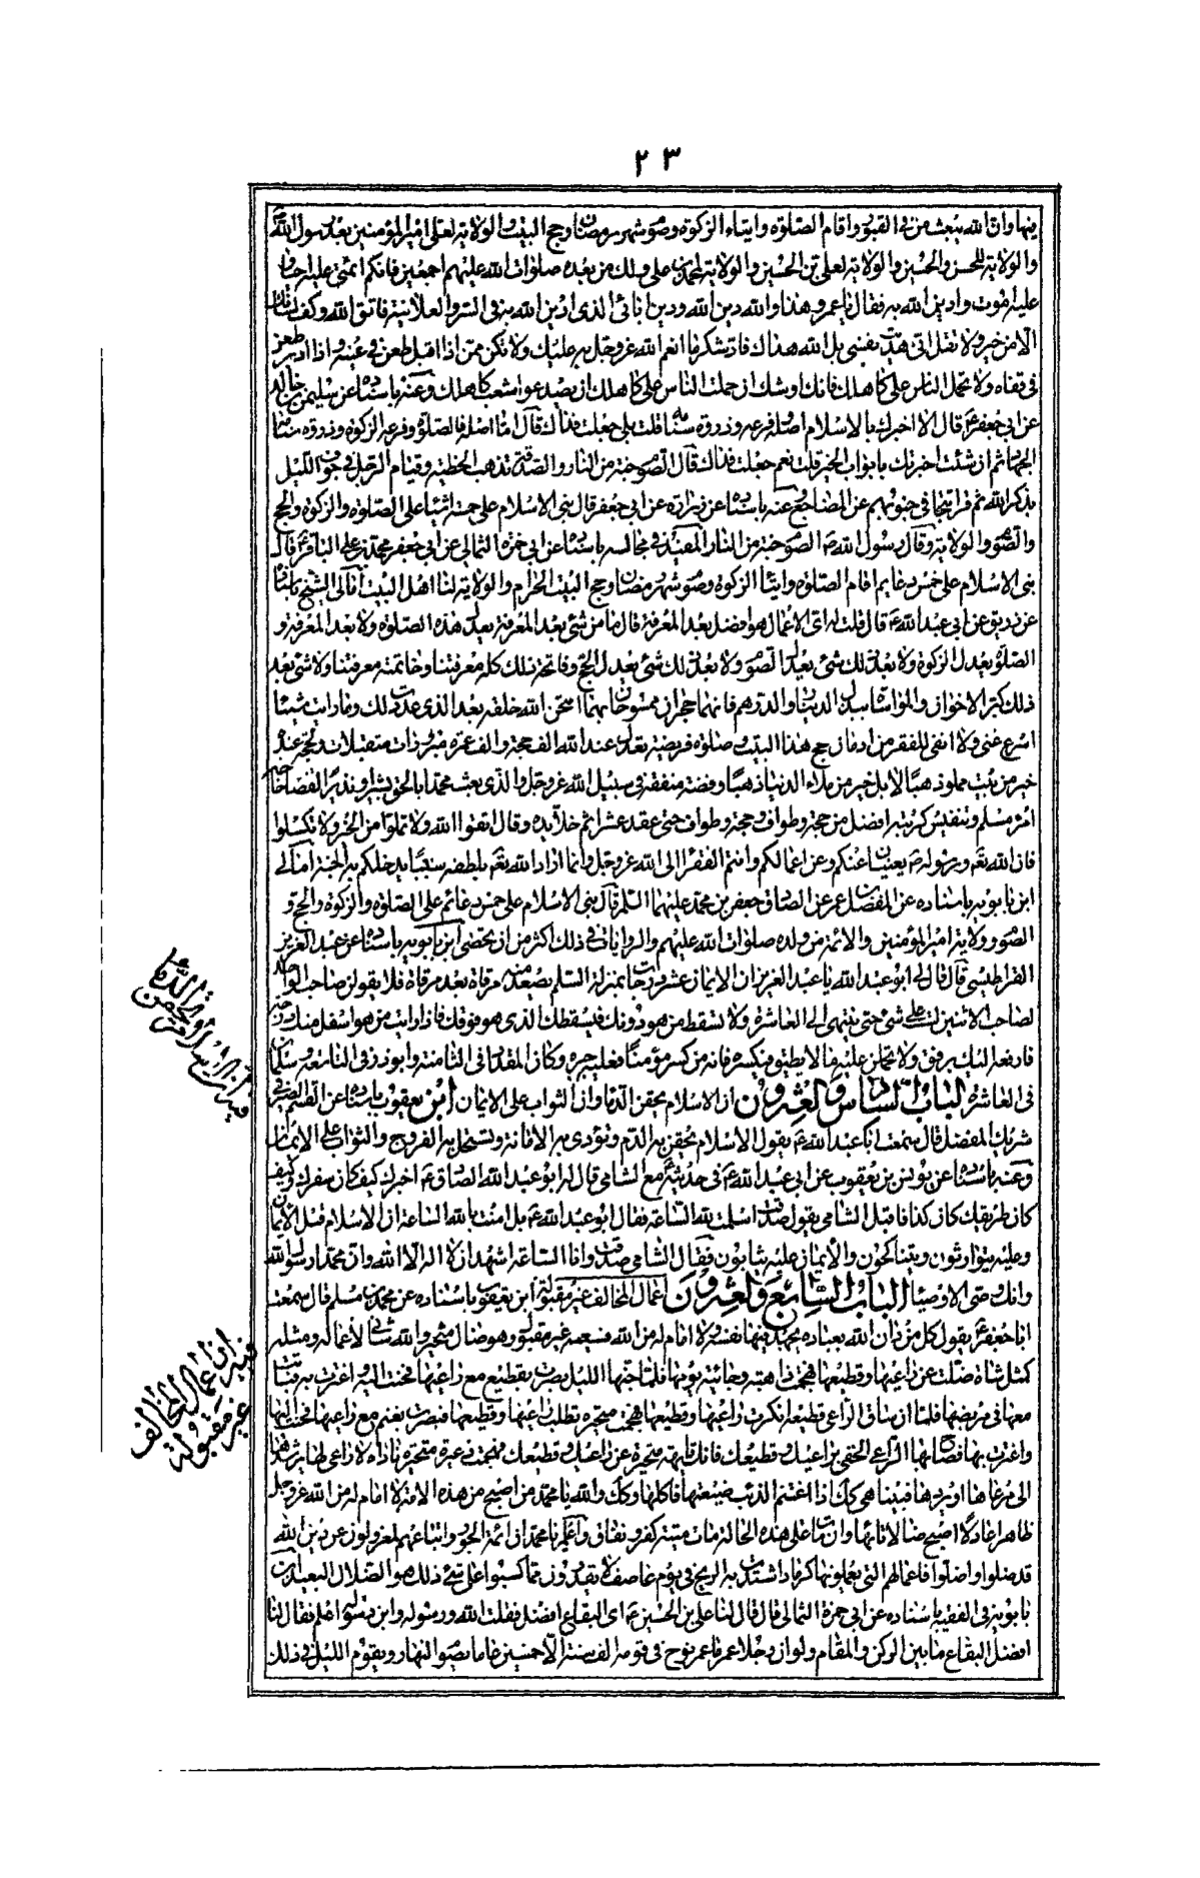 ٢٣
فيها وان الله يبعث من في القبور واقام الصلوة وايتاء الزكوة وصوم شهر رمضان وحج البيت والولاية لعلي امير المؤمنين بعد رسول الله
والولاية للحسن والحسين والولاية لعلي بن الحسين والولاية لمحمد بن علي ولك من بعده صلوات الله عليهم اجمعين فانكم ائمتي عليه احيا
عليه اموت وادين الله به فقال يا عمرو هذا والله دين الله ودين ابائي الذي ادين الله به في السر والعلانية فاتق الله وكف لسانك
الا من خير ولا تقل اني هديت نفسي بل الله هداك فاد شكر ما انعم الله عز وجل به عليك ولا تكن ممن اذا اقبل طعن في عينه واذا ادبر طعن
في قفاه ولا تحمل الناس على كاهلك فانك اوشك ان حملت الناس على كاهلك ان يصدعوا شعب كاهلك وعنه باسناده عن سليمن بن خالد
عن ابي جعفر ع قال الا اخبرك بالاسلام اصله وفرعه وذروة سنامه قلت بلى جعلت فداك قال اما اصله فالصلوة وفرعه الزكوة وذروة سنامه
الجهاد ثم ان شئت اخبرتك بابواب الخير قلت نعم جعلت فداك قال الصوم جنة من النار والصدقة تذهب الخطيئة وقيام الرجل في جوف الليل
بذكر الله ثم قرا تتجافى جنوبهم عن المضاجع وعنه باسناده عن زرارة عن ابي جعفر قال بني الاسلام على خمسة اشياء على الصلوة والزكوة والحج
والصوم والولاية وقال رسول الله ص الصوم جنة من النار المفيد في مجالسه باسناده عن ابي حمزة الثمالي عن ابي جعفر محمد بن علي الباقر ع قال
بني الاسلام على خمس دعايم اقام الصلوة وايتاء الزكوة وصوم شهر رمضان وحج البيت الحرام والولاية لنا اهل البيت امالي الشيخ باسناده
عن زريق عن ابي عبد الله ع قال قلت له اي الاعمال هو افضل بعد المعرفة قال ما من شئ بعد المعرفة يعدل هذه الصلوة ولا بعد المعرفة و
الصلوة يعدل الزكوة ولا بعد ذلك شئ يعدل الصوم ولا بعد ذلك شئ يعدل الحج وفاتحة ذلك كله معرفتنا وخاتمته معرفتنا ولا شئ بعد
ذلك كبر الاخوان والمواساة ببذل الدينار والدرهم فانهما حجران ممسوخان بهما امتحن الله خلقه بعد الذي عددت لك وما رايت شيئا
اسرع غنى ولا انفى للفقر من ادمان حج هذا البيت وصلوة فريضة تعدل عند الله الف حجة والف عمرة مبرورات متقبلات ولحجة عنده
خير من بيت مملو ذهبا لا بل خير من ملاء الدنيا ذهبا وفضة منفقة في سبيل الله عز وجل والذي بعث محمدا بالحق بشيرا ونذيرا لقضاء حاجة
امرء مسلم وتنفيس كربته افضل من حجة وطواف وحجة وطواف حتى عقد عشرا ثم خلا يده وقال اتقوا الله ولا تملوا من الخير ولا تكسلوا
فان الله تع ورسوله ص يغنيان عنكم وعن اعمالكم وانتم الفقراء الى الله عز وجل وانما اراد الله تع بلطفه سببا يدخلكم به الجنة امالي
ابن بابويه باسناده عن المفضل بن عمر عن الصادق جعفر بن محمد عليهما السلم قال بني الاسلام على خمس دعائم على الصلوة والزكوة والحج و
الصوم وولاية امير المؤمنين والائمة من ولده صلوات الله عليهم والروايات في ذلك اكثر من ان يحصى ابن بابويه باسناده عن عبد العزيز
القراطيسي قال قال لي ابو عبد الله يا عبد العزيز ان الايمان عشر درجات بمنزلة السلم يصعد منه مرقاة بعد مرقاة فلا يقولن صاحب الواحد
لصاحب الاثنين لست على شئ حتى ينتهى الى العاشرة ولا تسقط من هو دونك فيسقطك الذي هو فوقك فاذا رايت من هو اسفل منك درجة
فارفعه اليك برفق ولا تحملن عليه ما لا يطيق فتكسره فانه من كسر مؤمنا فعليه جبره وكان المقداد في الثامنة وابو ذر في التاسعة وسلمان
في العاشرة الباب السادس والعشرون ان الاسلام يحقن الدماء وان الثواب على الايمان ابن يعقوب باسناده عن القسم الصيرفي
شريك المفضل قال سمعت ابا عبد الله ع يقول الاسلام يحقن به الدم وتؤدى به الامانة وتستحل به الفروج والثواب على الايمان
وعنه باسناده عن يونس بن يعقوب عن ابي عبد الله ع في حديثه مع الشامي قال له ابو عبد الله الصادق ع اخبرك كيف كان سفرك وكيف
كان طريقك كان كذا فاقبل الشامي يقول صدقت اسلمت لله الساعة فقال ابو عبد الله ع بل امنت بالله الساعة ان الاسلام قبل الايمان
وعليه يتوارثون ويتناكحون والايمان عليه يثابون فقال الشامي صدقت وانا الساعة اشهد ان لا اله الا الله وان محمدا رسول الله
وانك وصي الاوصياء الباب السابع والعشرون اعمال المخالف غير مقبولة ابن يعقوب باسناده عن محمد بن مسلم قال سمعت
ابا جعفر ع يقول كل من دان الله بعبادة يجهد فيها نفسه ولا امام له من الله فسعيه غير مقبول وهو ضال متحير والله شانئ لاعماله ومثله
كمثل شاة ضلت عن راعيها وقطيعها فهجمت ذاهبة وجائية يومها فلما جنها الليل بصرت بقطيع مع راعيها فحنت اليه واغترت به فباتت
معها في مربضها فلما ان ساق الراعي قطيعه انكرت راعيها وقطيعها فهجمت متحيرة تطلب راعيها وقطيعها فبصرت بغنم مع راعيها فحنت اليها
واغترت بها فصاح بها الراعي الحقي براعيك وقطيعك فانك تايهة متحيرة عن راعيك وقطيعك فهجمت ذعرة متحيرة نادة لا راعي لها يرشدها
الى مرعاها او يردها فبينا هي كك اذا اغتنم الذئب ضيعتها فاكلها وكك والله يا محمد من اصبح من هذه الامة لا امام له من الله عز وجل
ظاهرا عادلا اصبح ضالا تائها وان مات على هذه الحالة مات ميتة كفر ونفاق واعلم يا محمد ان ائمة الجور واتباعهم لمعزولون عن دين الله
قد ضلوا واضلوا فاعمالهم التي يعملونها كرماد اشتدت به الريح في يوم عاصف لا يقدرون مما كسبوا على شئ ذلك هو الضلال البعيد ابن
بابويه في الفقيه باسناده عن ابي حمزة الثمالي قال قال لنا علي بن الحسين ع اي البقاع افضل فقلت الله ورسوله وابن رسوله اعلم فقال لنا
افضل البقاع ما بين الركن والمقام ولو ان رجلا عمر ما عمر نوح في قومه الف سنة الا خمسين عاما يصوم النهار ويقوم الليل في ذلك
فيه ان اعمال المخالف
غير مقبولة